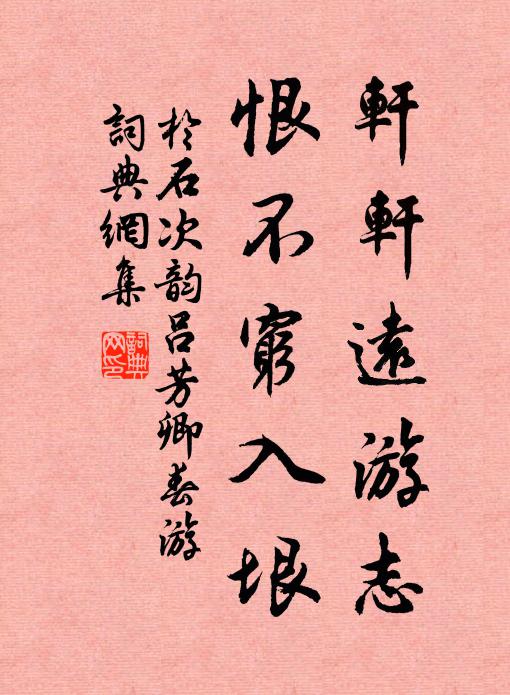 軒軒遠游志
恨不窮入垠
於石次韵吕芳卿春游
詞典網集
詞典網印